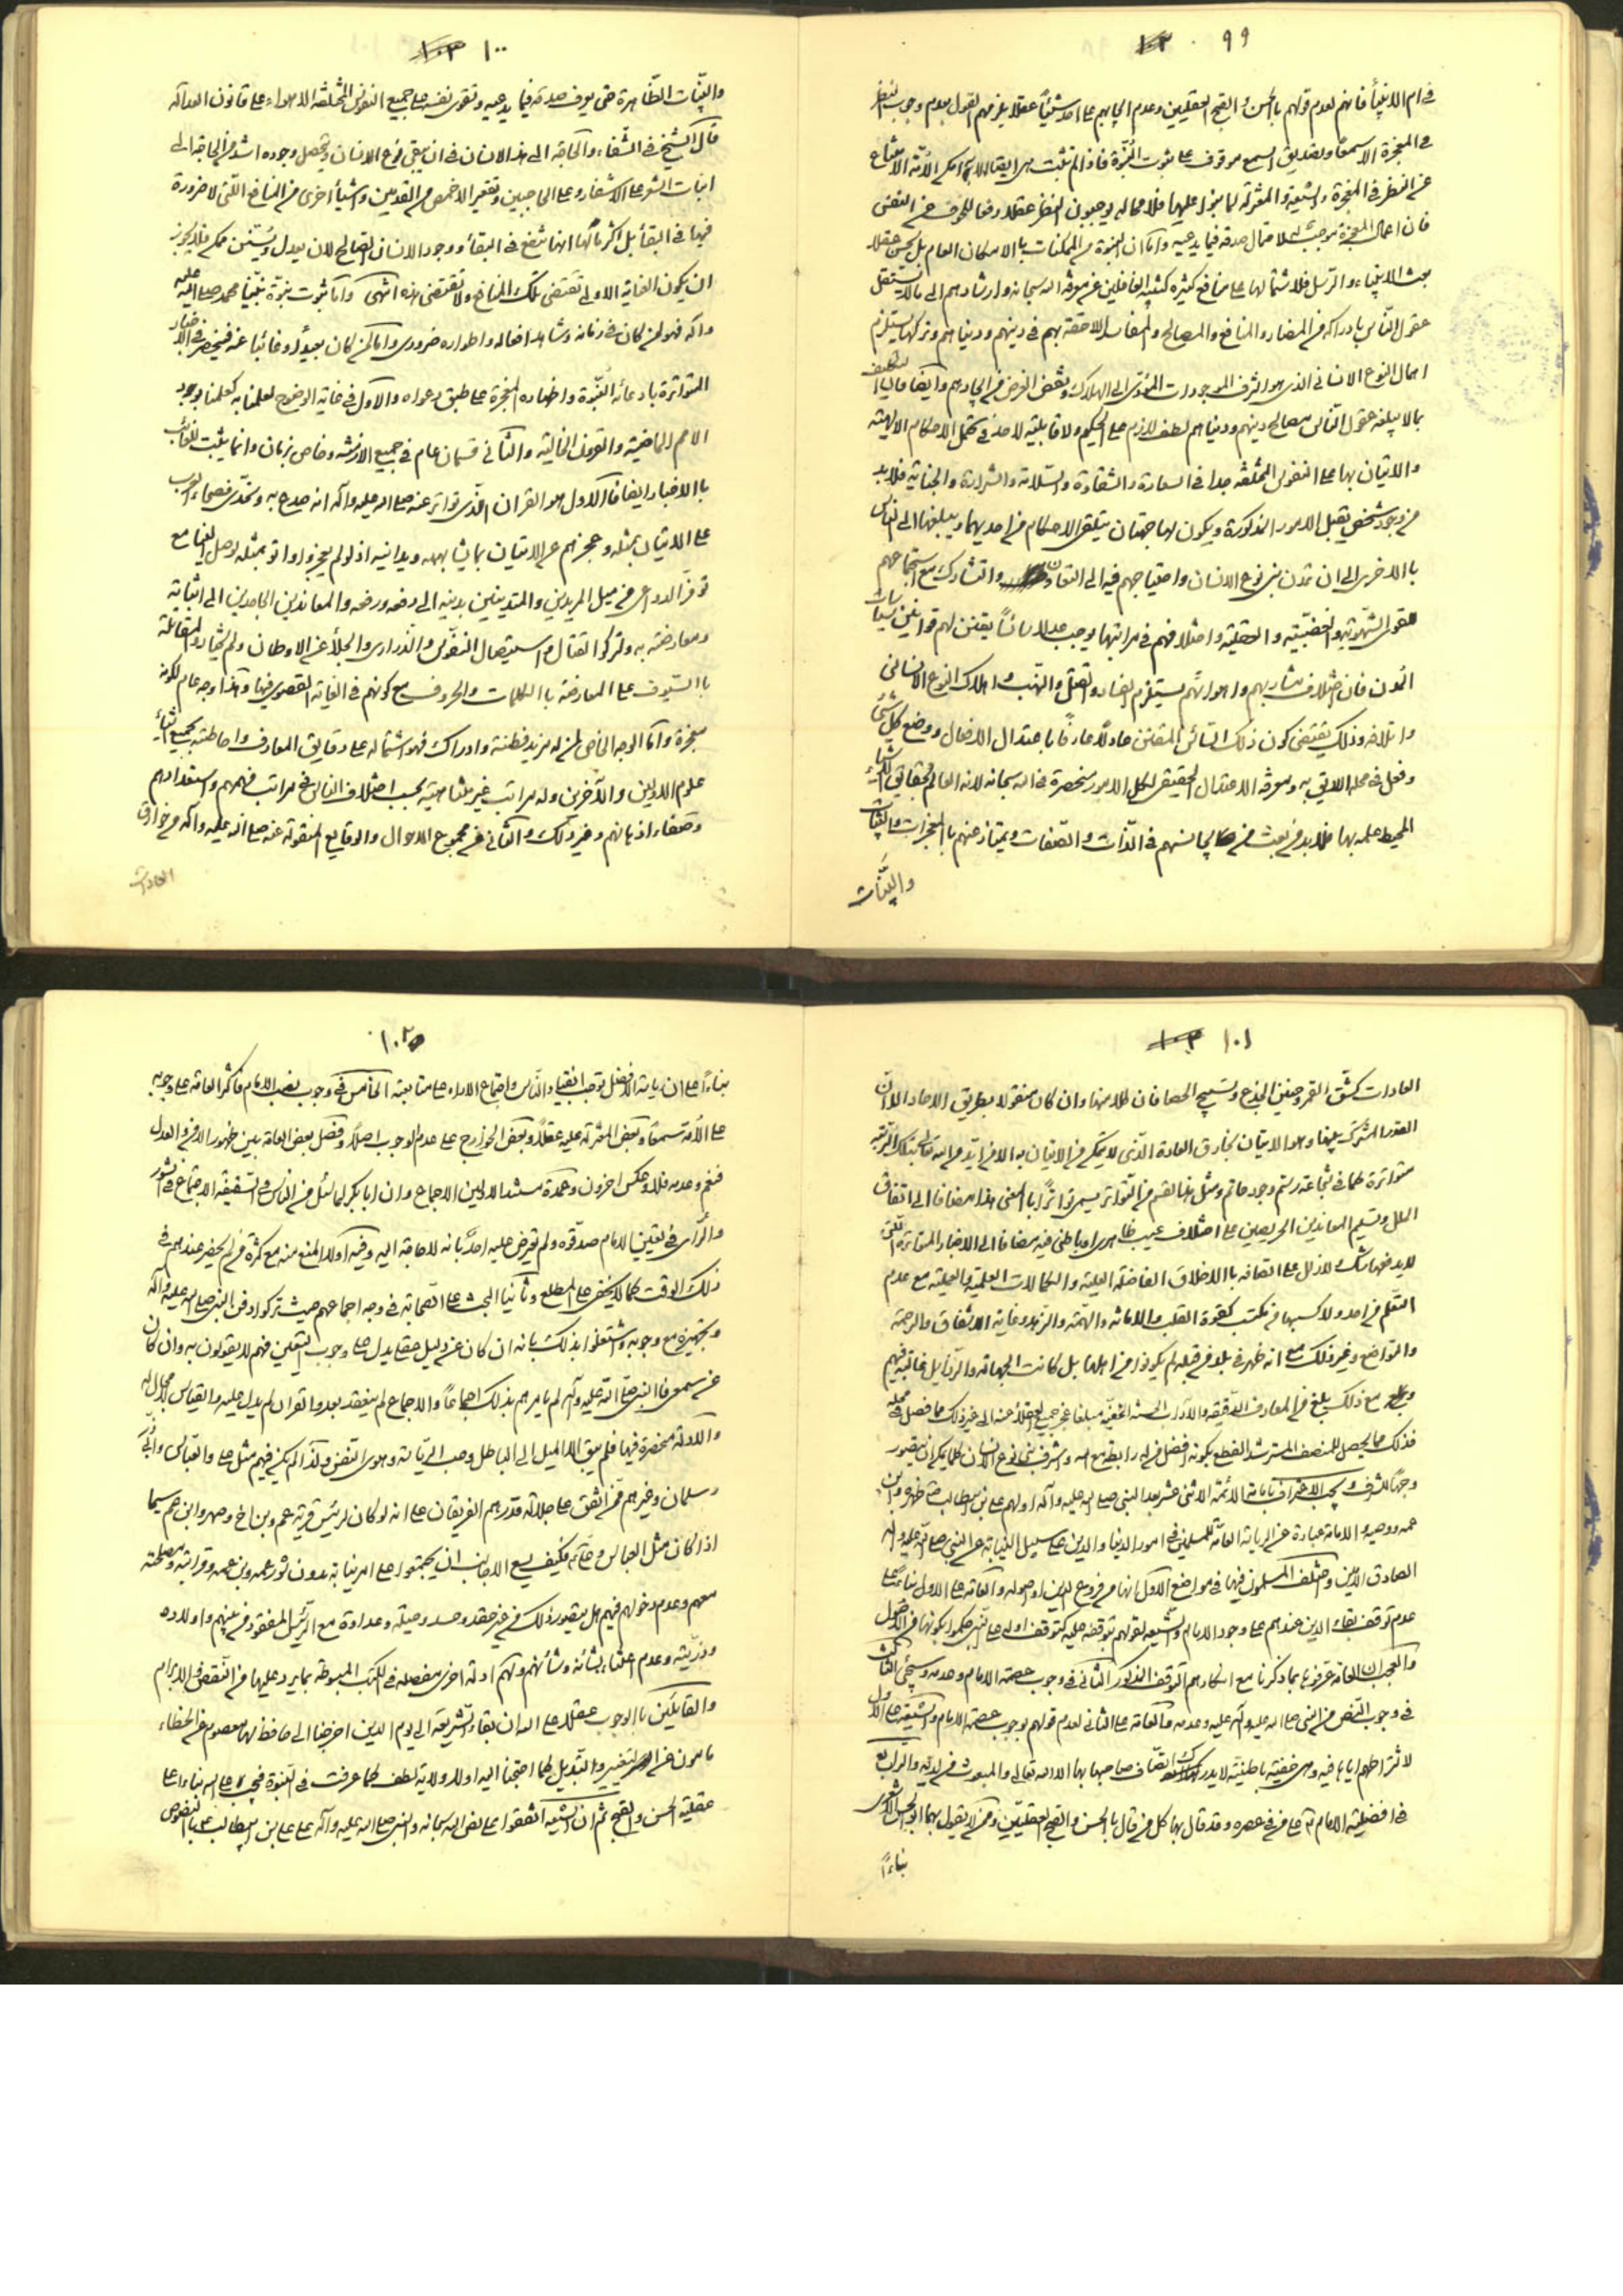 ٩٩
في ام الانبياء فانهم لعدم قولهم بالحسن والقبح العقليين وعدم ايجابهم على احد شيئاً عقلا يلزمهم القول بعدم وجوب النظر
في المعجزة الا سمعا وتصديق السمع موقوف على ثبوت النبوة فاذا لم تثبت
عن النظر في المعجزة والشيعة والمعتزلة لما يجوز عليهما فلا محالة يوجبون النظر عقلا دفعا للخوف عن النفس
فان اعمال المعجزة موجب لاحتمال صدقه فيما يدعيه واما ان النبوة من الممكنات بالامكان العام بل يحسن عقلا
بعث الانبياء والرسل فلاشتمالها على منافع كثيرة كتنبيه الغافلين عن معرفة الله سبحانه وارشادهم الى ما لا يستقل
عقول الناس بادراكه من المضار والمنافع والمصالح والمفاسد اللاحقة بهم في دينهم ودنياهم وتركها يستلزم
اهمال النوع الانساني الذي هو اشرف الموجودات المؤدي الى الهلاك ونقض الغرض من ايجادهم وايضا فالتكليف
بما لا يبلغه عقول الناس من مصالح دينهم ودنياهم لطف لازم على الحكيم ولا قابلية لاحد في تحمل الاحكام الالهية
والاتيان بها على النفوس المختلفة جدا في السعادة والشقاوة والسلامة والشرارة والجناية فلا بد
من وجود شخص يقبل الامور المذكورة ويكون لها جهتان يتلقى الاحكام من احديهما ويبلغها الى الناس
بالاخرى الى ان تمدن بني نوع الانسان واحتياجهم فيه الى التعاون والتشارك مع استجماعهم
لقوى الشهوية والغضبية والعقلية واختلافهم في مراتبها يوجب عدلا سائساً يقنن لهم قوانين سياسات
المدن فان اختلاف مشاربهم واهوائهم يستلزم الفساد والقتل والنهب واهلاك النوع الانساني
واتلافه وذلك يقتضي كون ذلك السائس المقنن عادلاً عارفاً باعتدال الافعال ووضع كل شيء
وفعل في محله اللايق به ومعرفة الاعتدال الحقيقي لكل الامور منحصرة في الله سبحانه لانه العالم بحقايق الاشياء
المحيط علمه بها فلا بد من بعث من يجانسهم في الذات والصفات ويمتاز عنهم بالمعجزات والبينات
والبينات
١٠٠
والبينات الظاهرة حتى يعرف صدقه فيما يدعيه وتقوى نفسه على جميع النفوس المختلفة الاهواء على قانون العدالة
قال الشيخ في الشفاء والحاجة الى هذا الانسان في ان يبقى نوع الانسان ويحصل وجوده اشد من الحاجة الى
انبات الشعر على الاشفار وعلى الحاجبين وتقعير الاخمص من القدمين واشياء اخرى من المنافع التي لا ضرورة
فيها في البقاء بل اكثر ما لها انها تنفع في البقاء ووجود الانسان الصالح لان يعدل ويسنن ممكن فلا يجوز
ان يكون العناية الاولى تقتضي تلك المنافع ولا تقتضي هذه انتهى واما ثبوت نبوة نبينا محمد صلى الله عليه
واله فهو لمن كان في زمانه وشاهد افعاله واطواره ضروري واما لمن كان بعيداً وغائبا عنه فينحصر في الاخبار
المتواترة بادعائه النبوة واظهاره المعجزة على طبق دعواه والاول في غاية الوضوح لعلمنا به كعلمنا بوجود
الامم الماضية والقرون الخالية والثاني قسمان عام في جميع الازمنة وخاص بزمان وانما يثبت للغائب
بالاخبار ايضا فالاول هو القران الذي تواتر عنه صلى الله عليه واله انه صدع به وتحدى فصحاء العرب
على الاتيان بمثله وعجزهم عن الاتيان بما يشابهه ويدانيه اذ لو لم يعجزوا واتوا بمثله لوصل الينا مع
توفر الدواعي من ميل المريدين والمتدينين بدينه الى دفعه ورفعه والمعاندين الجاحدين الى اثباته
ومعارضته به ولتركوا القتال واستيصال النفوس والذراري والجلاء عن الاوطان ولم يختاروا المقاتلة
بالسيوف على المعارضة بالكلمات والحروف مع كونهم في الغاية القصوى فيها وهذا وجه عام لكونه
معجزة واما الوجه الخاص لمن له مزيد فطنة وادراك فهو اشتماله على دقايق المعارف واحاطته بجميع انباء
علوم الاولين والآخرين وله مراتب غير متناهية بحسب اختلاف الناس في مراتب فهمهم واستعدادهم
وصفاء اذهانهم وغير ذلك والثاني من مجموع الاحوال والوقايع المنقولة عنه صلى الله عليه واله من خوارق
العادات
١٠١
العادات كشق القمر وحنين الجذع وتسبيح الحصا فان كلا منها وان كان منقولا بطريق الاحاد الا ان
القدر المشترك بينها وهو الاتيان بخارق العادة الذي لا يمكن من الاتيان به الا من ايد من الله تعالى بتلك المرتبة
متواترة كما في شجاعة رستم وجود حاتم ومثل هذا القسم من التواتر يسمى تواتراً بالمعنى هذا مضافا الى اتفاق
الملل وتسليم المعاندين الحريصين على اختلاف عيب ظاهري او باطني فيه مضافا الى الاخبار المتواترة التي
لا يدفعها شك لاذلال على اتصافه بالاخلاق الفاضلة العلية والكمالات العلمية والعملية مع عدم
التعلم من احد ولا كسبها من مكتب كقوة القلب والامانة والهمة والزهد وغاية الاشفاق والرحمة
والتواضع وغير ذلك مع انه ظهر في بلد من قبله لم يكونوا من اهلها بل كانت الجهالة والرذايل غالبة فيهم
ومع ذلك بلغ من المعارف الدقيقة والآداب الحسنة الخفية مبلغا عجز جميع العقلاء عنه الى غير ذلك مما فصل في محله
فذلك مما يحصل للمنصف المسترشد القطع بكونه افضل من له رابطة مع الله واشرف بني نوع الانسان كلما يمكن ان يتصور
وجهاً للشرف ويجب الاعتراف بامامة الائمة الاثني عشر بعد النبي صلى الله عليه واله اولهم علي بن ابيطالب صهره وابن
عمه ووصيه والامامة عبارة عن الرياسة العامة للمسلمين في امور الدنيا والدين على سبيل النيابة عن النبي صلى الله عليه واله
الصادق الامين واختلف المسلمون فيها في مواضع الاول انها من فروع الدين او اصوله والعامة على الاول بناء على
عدم توقف بقاء الدين عندهم على وجود الامام والشيعة لقولهم بتوقفه عليه كتوقف اوله على النبي حكموا بكونها من الاصول
والعجب ان العامة عرفوها بما ذكرنا مع انكارهم التوقف المذكور الثاني في وجوب عصمة الامام وعدمه وسيجيء الثالث
في وجوب النص من النبي صلى الله عليه واله عليه وعدمه والعامة على الثاني لعدم قولهم بوجوب عصمة الامام والشيعة على الاول
لاشتراطهم اياها فيه وهي خفية باطنية لا يدرك اتصاف صاحبها بها الا الله تعالى والمبعوث من لدنه والرابع
في افضلية الامام على من في عصره وقد قال بها كل من قال بالحسن والقبح العقليين ومن لا يقول بهما ابو الحسن الاشعري
بناءاً
١٠٢
بناءاً على ان رياسة الافضل توجب انقياد الناس واجتماع الاراء على متابعته الخامس في وجوب نصب الامام فاكثر العامة على وجوبه
على الامة سمعا وبعض المعتزلة عليه عقلاً وبعض الخوارج على عدم الوجوب اصلاً وفصل بعض العامة بين ظهور الامن والعدل
فنعم وعدمه فلا وعكس اخرون وعمدة مستند الاولين الاجماع وان ابا بكر لما سئل من الناس في السقيفة الاجتماع في الشور
والرأي في تعيين الامام صدقوه ولم يعترض عليه احد بانه لا حاجة اليه وفيه اولا المنع منه مع كثرة من لم يحضر عندهم في
ذلك الوقت كما لا يخفى على المطلع وثانيا البحث على الصحابة في وجه اجماعهم حيث تركوا دفن النبي صلى الله عليه واله
وتجهيزه مع وجوبه واشتغلوا بذلك بانه ان كان عن دليل عقلي يدل على وجوب التعيين فهم لا يقولون به وان كان
عن سمعي فالنبي صلى الله عليه واله لم يامرهم بذلك اجماعاً والاجماع لم ينعقد بعد والقران لم يدل عليه والقياس لا مجال له
والادلة منحصرة فيها فلم يبق الا الميل الى الباطل وحب الرياسة وهوى النفس ولذا لم يكن فيهم مثل علي والعباس وابي
وسلمان وغيرهم ممن اتفق على جلالة قدرهم الفريقان على انه لو كان لرئيس قرية عم وبن اخ وصهر وابن عم سيما
اذا كان مثل العباس وعلي فكيف يسع الاجانب ان يجتمعوا على امر نيابته بدون شور عمه وبن عمه وقرابته ومصلحته
معهم وعدم دخولهم فيهم هل يتصور ذلك من غير حقد وحسد وحيلة وعداوة مع الرئيس المفقود من بينهم واولاده
وذريته وعدم اعتناء بشأنه وشأنهم ولهم ادلة اخرى مفصلة في الكتب المبسوطة بما يرد عليها من النقض والابرام
والقائلين بالوجوب عقلا على الله ان بقاء الشريعة الى يوم الدين احوجنا الى حافظ لها معصوم عن الخطاء
مامون عن التغيير والتبديل كما احتجنا اليه اولا ولانه لطف كما عرفت في النبوة فيجب على الله بناء على
عقلية الحسن والقبح ثم ان الشيعة اتفقوا على نص الله سبحانه والنبي صلى الله عليه واله على علي بن ابيطالب بالنصوص